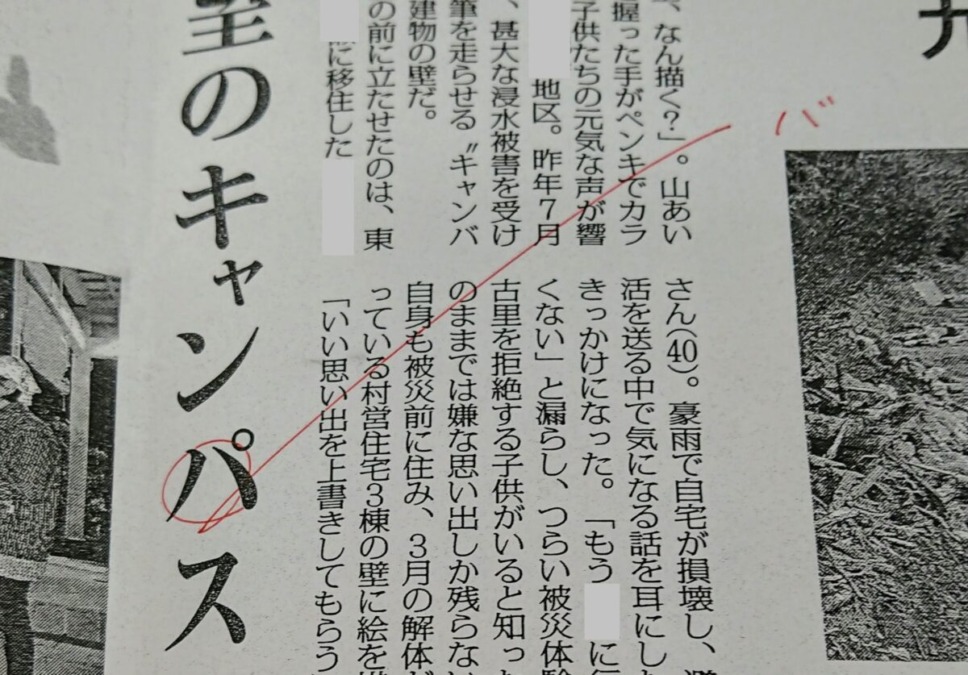 バ
、なん描く?」。山あい
握った手がペンキでカラ
子供たちの元気な声が響
地区。昨年7月
、甚大な浸水被害を受け
筆を走らせる〝キャンバ
建物の壁だ。
の前に立たせたのは、東
に移住した
さん(40)。豪雨で自宅が損壊し、
活を送る中で気になる話を耳にし
きっかけになった。「もう に
くない」と漏らし、つらい被災体験
古里を拒絶する子供がいると知っ
のままでは嫌な思い出しか残らない
自身も被災前に住み、3月の解体が
っている村営住宅3棟の壁に絵を
「いい思い出を上書きしてもらう
のキャンパス